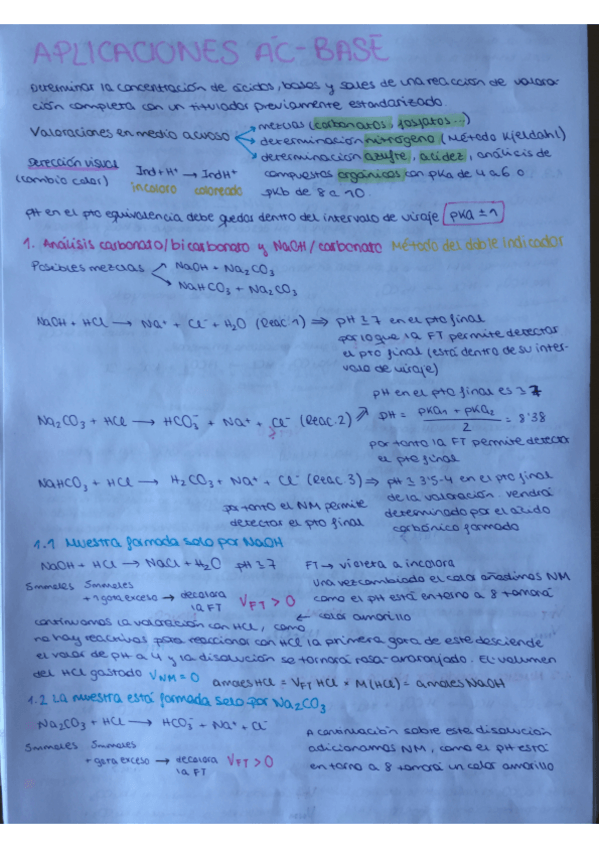 APLICACIONES ÁC-BASE
Determinar la concentración de ácidos, bases y sales de una reacción de valora-
ción completa con un titulador previamente estandarizado.
Valoraciones en medio acuoso
mezclas (carbonatos, fosfatos...)
determinación nitrógeno (Método Kjeldahl)
determinación azufre, acidez, análisis de
compuestos orgánicos con pKa de 4 a 6 o
pKb de 8 a 10.
Detección visual
(cambio color)
Ind + H⁺ → IndH⁺
incoloro coloreado
pH en el pto equivalencia debe quedar dentro del intervalo de viraje pKa ± 1
1. Análisis carbonato/bicarbonato y NaOH/carbonato Método del doble indicador
Posibles mezclas
NaOH + Na₂CO₃
NaHCO₃ + Na₂CO₃
NaOH + HCl → Na⁺ + Cl⁻ + H₂O (Reac. 1) ⇒ pH ≥ 7 en el pto final
por lo que la FT permite detectar
el pto final (está dentro de su inter-
valo de viraje)
pH en el pto final es ≥ 7
Na₂CO₃ + HCl → HCO₃⁻ + Na⁺ + Cl⁻ (Reac. 2) pH = pKa₁ + pKa₂ / 2 = 8'38
por tanto la FT permite detectar
el pto final
NaHCO₃ + HCl → H₂CO₃ + Na⁺ + Cl⁻ (Reac. 3) ⇒ pH ≥ 3'5-4 en el pto final
de la valoración vendrá
determinado por el ácido
carbónico formado
por tanto el NM permite
detectar el pto final
1.1 Muestra formada solo por NaOH
NaOH + HCl → NaCl + H₂O pH ≥ 7 FT → violeta a incolora
5mmoles 5mmoles
+ 1 gota exceso → decolora
la FT
V_FT > 0
Una vez cambiado el color añadimos NM
como el pH está en torno a 8 tomará
← color amarillo
continuamos la valoración con HCl, como
no hay reactivos para reaccionar con HCl la primera gota de este desciende
el valor de pH a 4 y la disolución se tornará rosa-anaranjado. El volumen
del HCl gastado V_NM = 0 amoles HCl = V_FT HCl × M(HCl) = amoles NaOH
1.2 La muestra está formada solo por Na₂CO₃
Na₂CO₃ + HCl → HCO₃⁻ + Na⁺ + Cl⁻
5mmoles 5mmoles
+ gota exceso → decolora
la FT
V_FT > 0
A continuación sobre esta disolución
adicionamos NM, como el pH está
en torno a 8 tomará un color amarillo